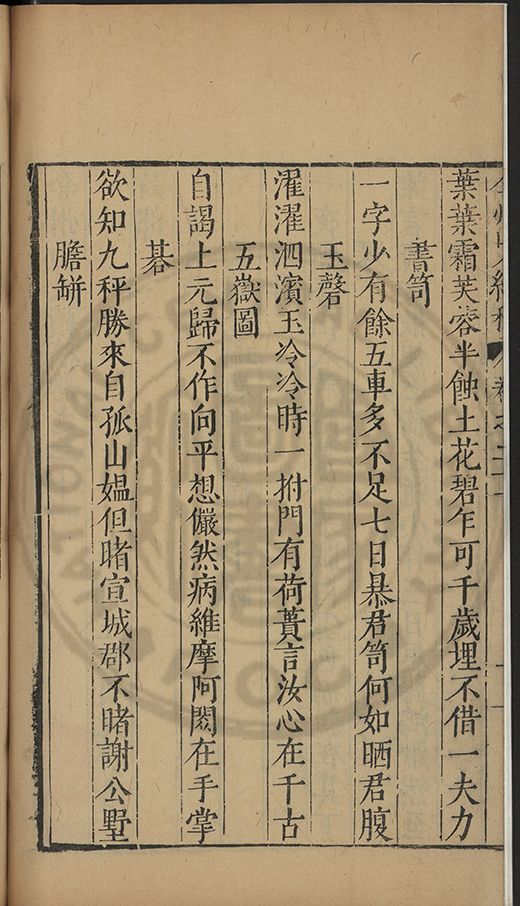 葉葉霜芙蓉半蝕土花碧乍可千歲埋不借一夫力
書笥
一字少有餘五車多不足七日暴君笥何如晒君腹
玉磬
濯濯泗濱玉冷冷時一拊門有荷蕢言汝心在千古
五嶽圖
自謁上元歸不作向平想儼然病維摩阿閦在手掌
碁
欲知九秤勝來自孤山媼但睹宣城郡不睹謝公墅
膽缾